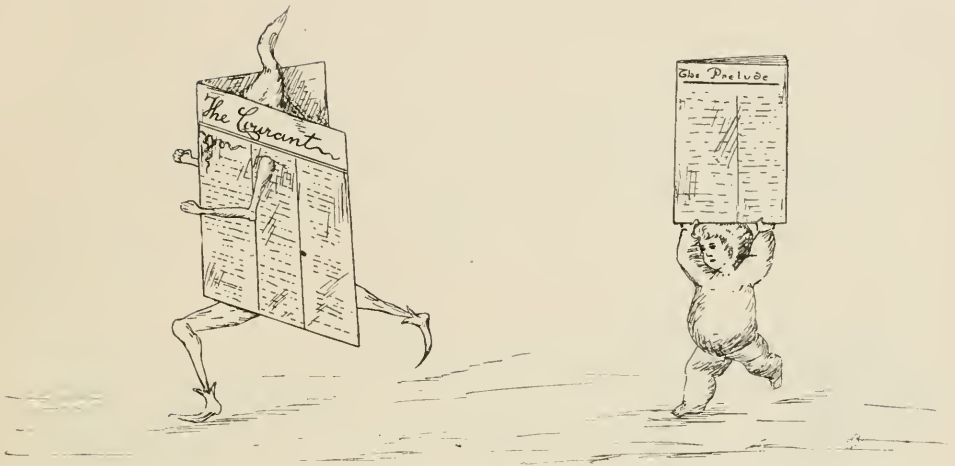 The Courant
The Prelude